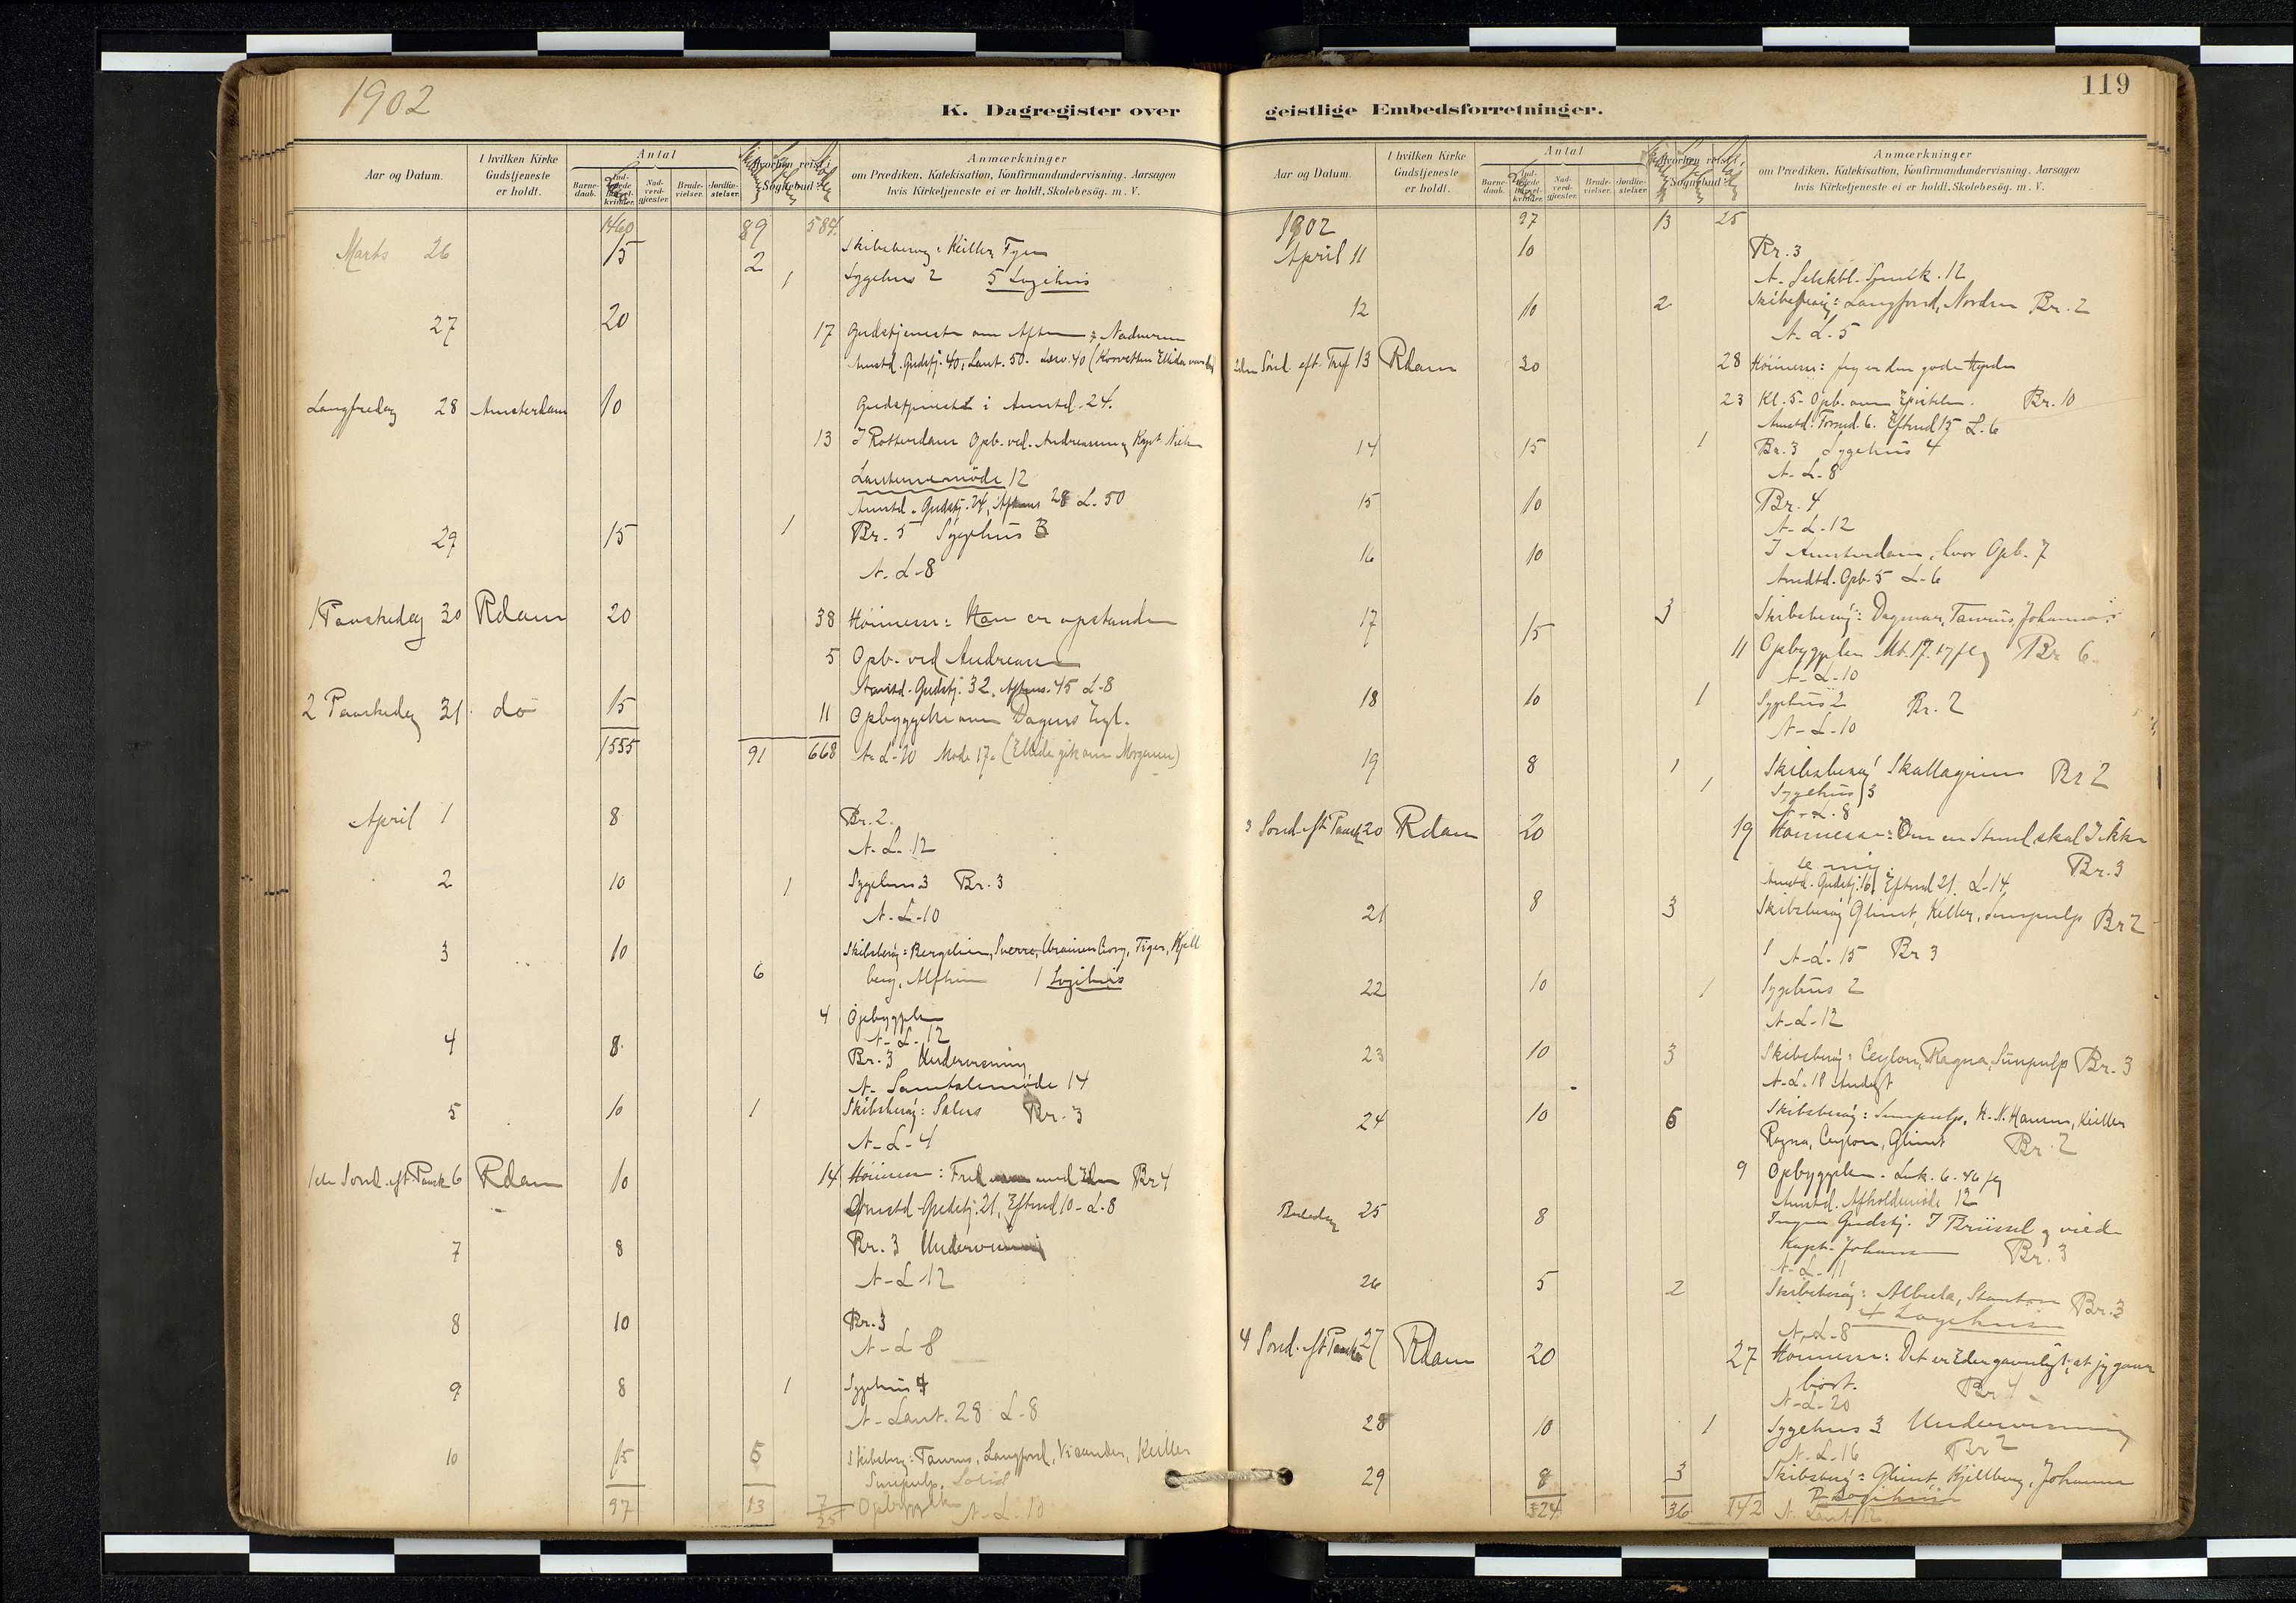 1902
K. Dagregister over
Aar og Datum.
I hvilken Kirke Gudstjeneste er holdt.
Antal
Barne-daab.
Nad-verd-gjæster.
Brude-vielser.
Jordfæ-stelser.
Hvorhen reist i Sognebud
Anmærkninger
om Prædiken, Katekisation, Konfirmandundervisning, Aarsagen
hvis Kirketjeneste ei er holdt, Skolebesög. m. V.
1460 89 584
Marts 26 15 2 Skibsbesøg: Keiller, Fyen
1 Sygehus 2 5 Logihus
27 20 17 Gudstjeneste om Aften
Amstd. Gudstj. 40, Lant. 50. (Korvetten Ellida
Langfredag 28 Amsterdam 10 Gudstjeneste i Amstd. 24.
13 I Rotterdam Opb. ved. Andreassen og Kapt.
Lanternemøde 12
Amstd. Gudstj. 24, Aftens 28 L. 50
29 15 1 Br. 5 Sygehus 3
A. L. 8
1 Paaskedag 30 Rdam 20 38 Høimesse: Han er opstanden
5 Opb. ved Andreassen
Amstd. Gudstj. 32, Aftens. 45 L. 8
2 Paaskedag 31 do 15 11 Opbyggelse over Dagens
1555 91 668 A. L. 20 Møde 17. (Ellida gik om Morgenen)
April 1 8 Br. 2.
A. L. 12
2 10 1 Sygehus 3 Br. 3
A. L. 10
3 10 Skibsbesøg: Bergslien, Sverre, Georg, Tiger, Kjell
6 berg, 1 Logihus
4 Opbyggelse
A. L. 12
4 8 Br. 3 Undervisning
A. Samtalemøde 14
5 10 1 Skibsbesøg: Br. 3
A. L. 4
1ste Sønd. eft. Paask 6 Rdam 10 14 Høimesse: Fred med Br 4
Amstd Gudstj. 21, Eftmd 10. L. 8
7 8 Br. 3 Undervisning
A. L 12
8 10 Br. 3
A. L 8
9 8 1 Sygehus 4
A. Lant. 28 L. 8
10 15 5 Skibsbesøg: Taurus, Langfond, Keiller
Sunpulp,
97 13 7 Opbyggelse A. L. 10
25
119
geistlige Embedsforretninger.
Aar og Datum.
I hvilken Kirke Gudstjeneste er holdt.
Antal
Barne-daab.
Nad-verd-gjæster.
Brude-vielser.
Jordfæ-stelser.
Hvorhen reist i Sognebud
Anmærkninger
om Prædiken, Katekisation, Konfirmandundervisning, Aarsagen
hvis Kirketjeneste ei er holdt, Skolebesög. m. V.
1902 97 13 25
April 11 10 Br. 3
A. 12
12 10 2 Skibsbesøg: Langfond, Norden Br. 2
A. L. 5
2den Sønd eft. 13 Rdam 20 28 Høimesse: Jeg er den gode Hyrde
23 Kl. 5. Opb. over Epistelen. Br. 10
Amstd. Formd. 6. Eftmd 15 L. 6
14 15 1 Br. 3 Sygehus 4
A. L. 8
15 10 Br. 4
A. L. 12
16 10 I Amsterdam, hvor Opb. 7
Amstd. Opb. 5 L. 6
17 15 3 Skibsbesøg: Dagmar, Taurus, Johanna
11 Opbyggelse Mt. 17. 17 flg Br. 6.
A. L. 10
18 10 1 Sygehus 2 Br. 2
A. L. 10
19 8 1 Skibsbesøg Skallagrim Br 2
1 Sygehus 3
A. L. 8
3 Sønd. eft Paask 20 Rdam 20 19 Høimesse: Om en Stund skal I ikke
se mig. Br. 3
Amstd. Gudstj. 16 Eftmd 21. L. 14
21 8 3 Skibsbesøg Glimt, Keiller, Sunpulp Br 2
A. L. 15 Br 3
22 10 1 Sygehus 2
A. L. 12
23 10 3 Skibsbesøg: Ceylon, Ragna, Sunpulp Br. 3
A. L. 18
24 10 6 Skibsbesøg: Sunpulp, H. N. Hansen, Keiller
Ragna, Ceylon, Glimt Br. 2
9 Opbyggelse. Luk. 6. 46 flg
Amstd. Afholdsmøde 12
Bededag 25 8 Ingen Gudstj. I Brüssel og viede
Kapt. Johansen Br. 3
A. L. 11
26 5 2 Skibsbesøg: Albula, Br. 3
4 Logihus
A. L. 8
4 Sønd. eft Paaske 27 Rdam 20 27 Høimesse: Det er Eder gavnligt, at jeg gaar
bort. Br 4
A. L. 20
28 10 1 Sygehus 3 Undervisning
A. L. 16 Br 2
29 8 3 Skibsbesøg: Glimt Kjellberg, Johanna
2 Logihus
324 36 142 A. Lant 12